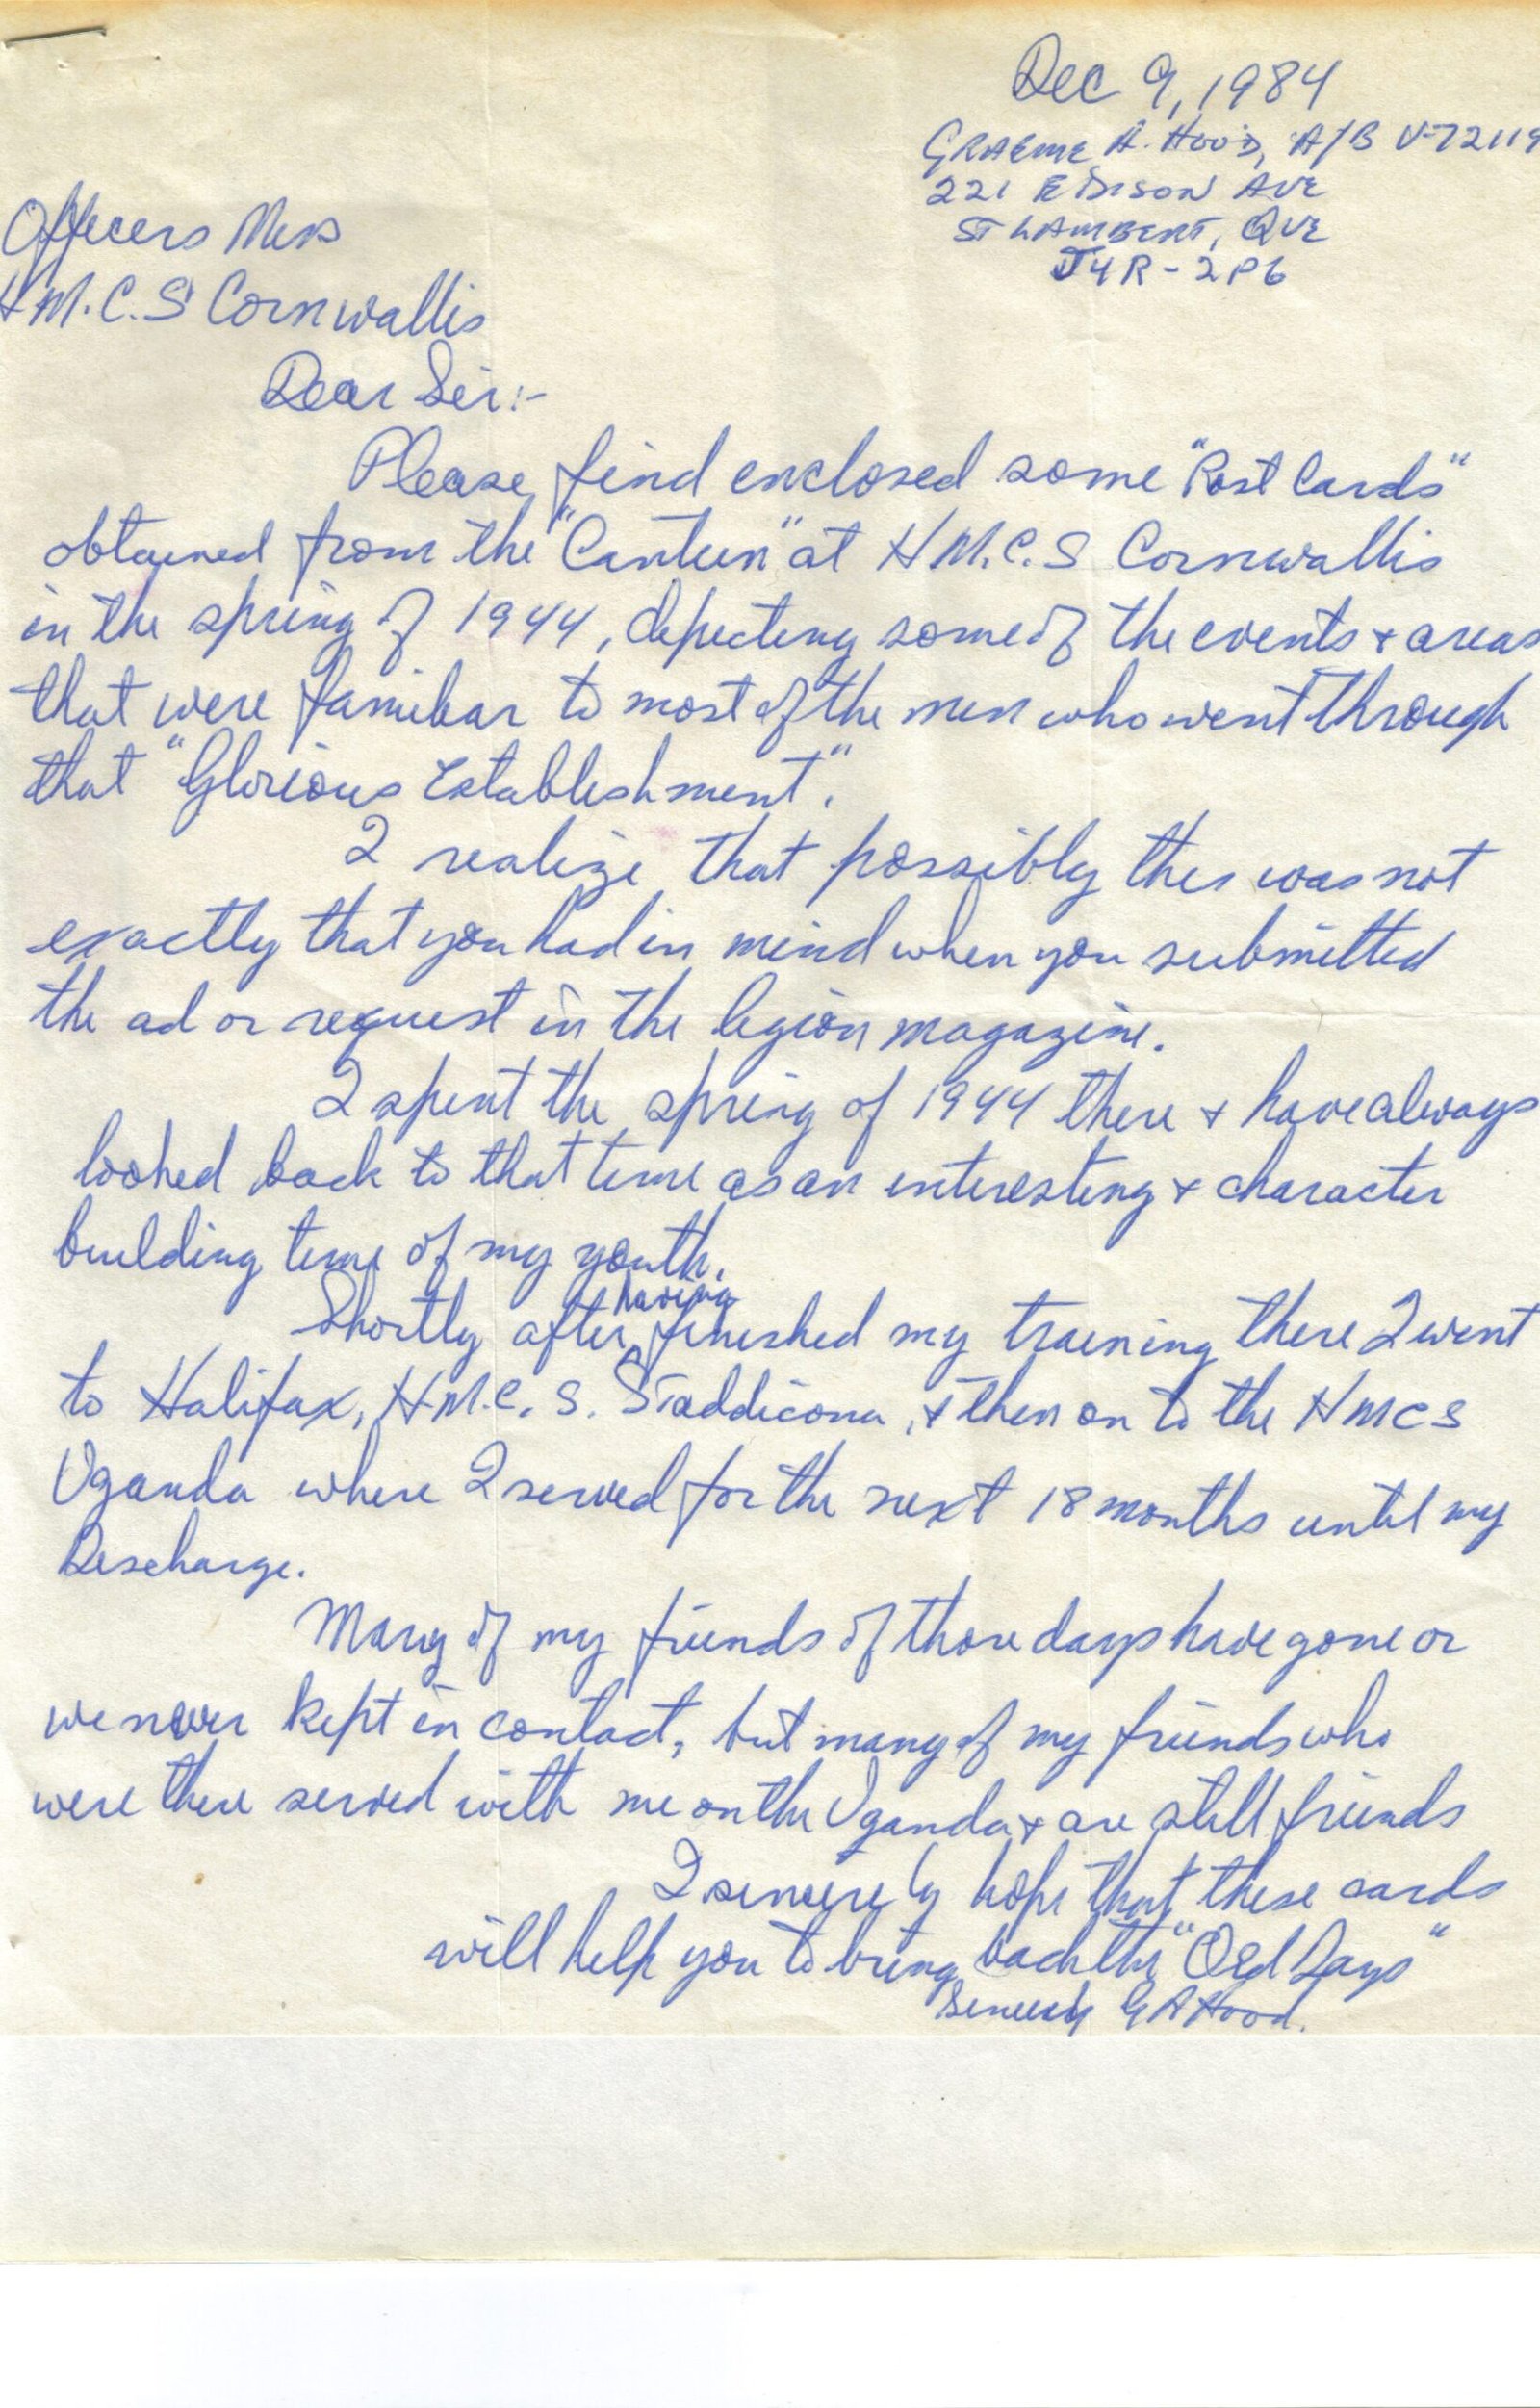 Dec 9, 1984
GRAEME A. HOOD, A/B V-72119
221 EDISON AVE
ST LAMBERT, QUE
J4R-2P6
Officers Mess
H.M.C.S Cornwallis
Dear Sir:-
Please find enclosed some "Post Cards"
obtained from the "Canteen" at H.M.C.S Cornwallis
in the spring of 1944, depicting some of the events & areas
that were familiar to most of the men who went through
that "Glorious Establishment".
I realize that possibly this was not
exactly that you had in mind when you submitted
the ad or request in the legion magazine.
I spent the spring of 1944 there & have always
looked back to that time as an interesting & character
building time of my youth.
Shortly after having finished my training there I went
to Halifax, H.M.C.S. Staddicona, & then on to the HMCS
Uganda where I served for the next 18 months until my
Discharge.
Many of my friends of those days have gone or
we never kept in contact, but many of my friends who
were there served with me on the Uganda & are still friends
I sincerely hope that these cards
will help you to bring back the "Old Days"
Sincerely G A Hood.